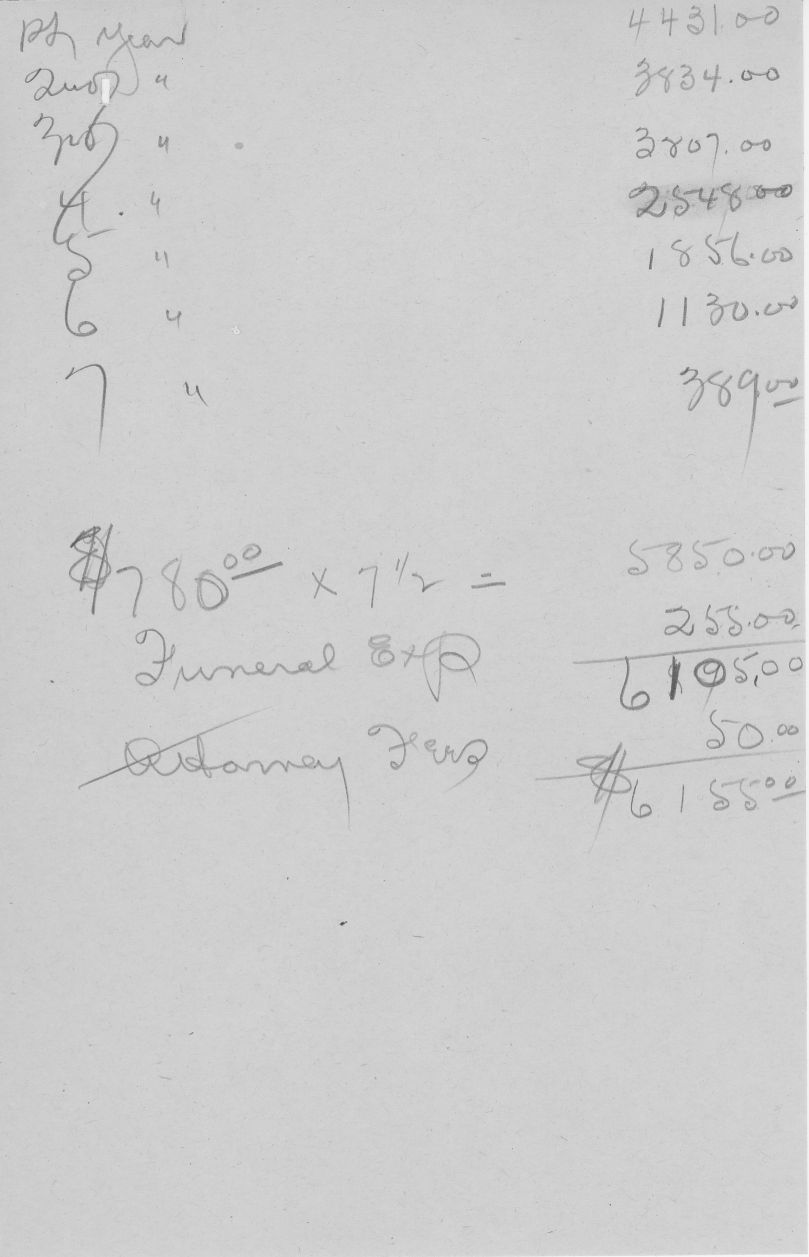 1st year 4431.00
2nd " 3834.00
3rd " 3807.00
4. " 2548.00
5 " 1856.00
6 " 1130.00
7 " 389.00
$780.00 x 7 1/2 = 5850.00
255.00
Funeral Exp 6105.00
50.00
Attorney Fees
$6155.00